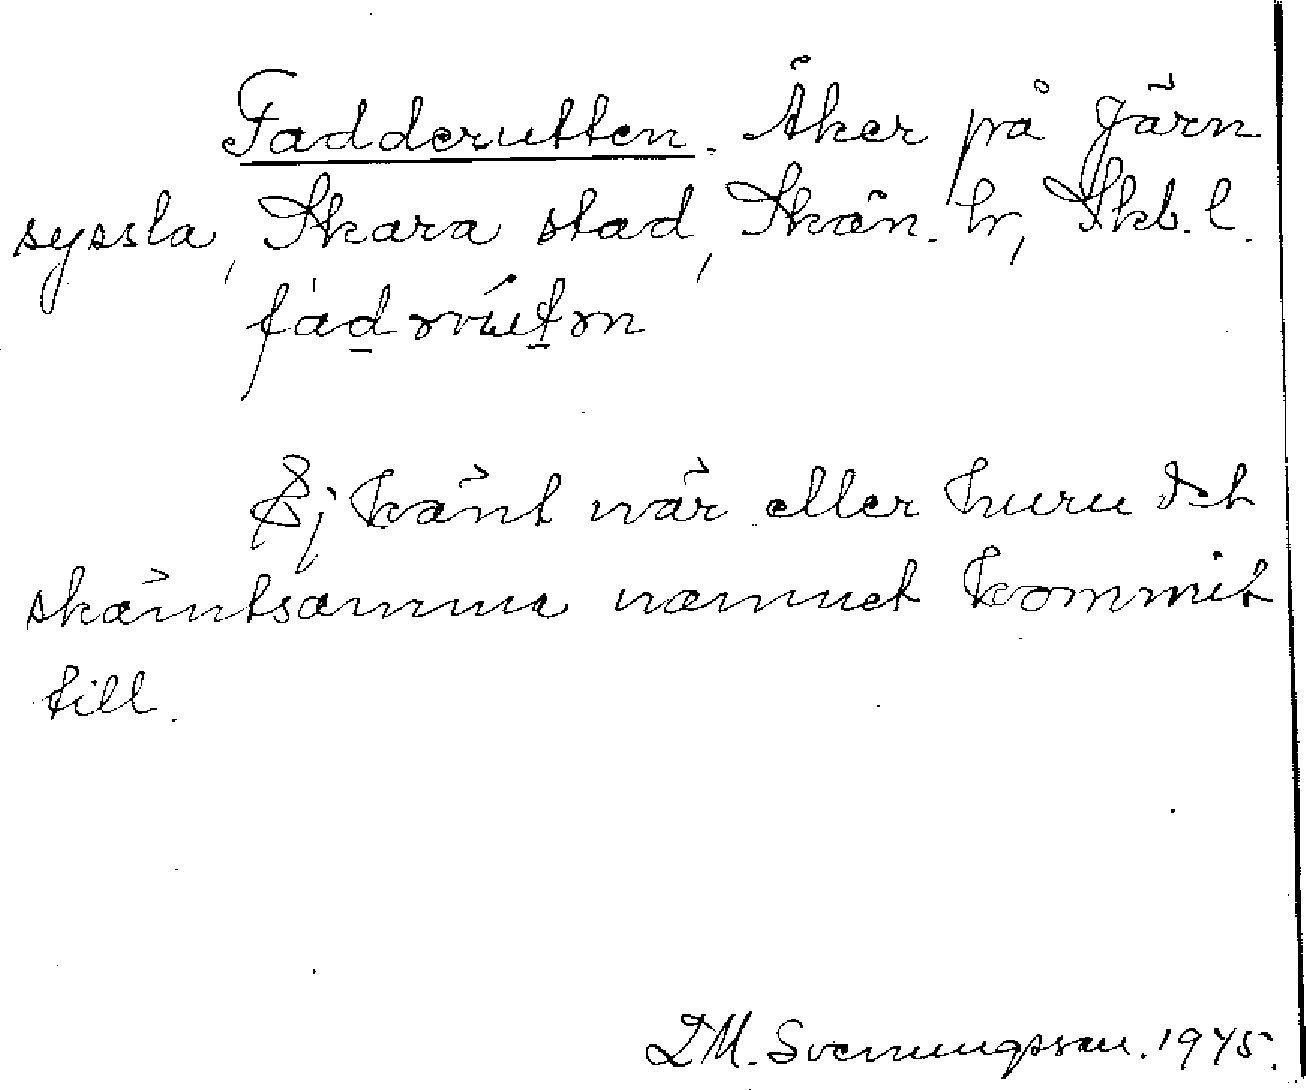 Fadderutten. Åker på Järn
syssla, Skara stad, Skån. hr, Skb. l.
Ej känt när eller huru det
skämtsamma namnet kommit
till.
D M. Svenungsson. 1945.